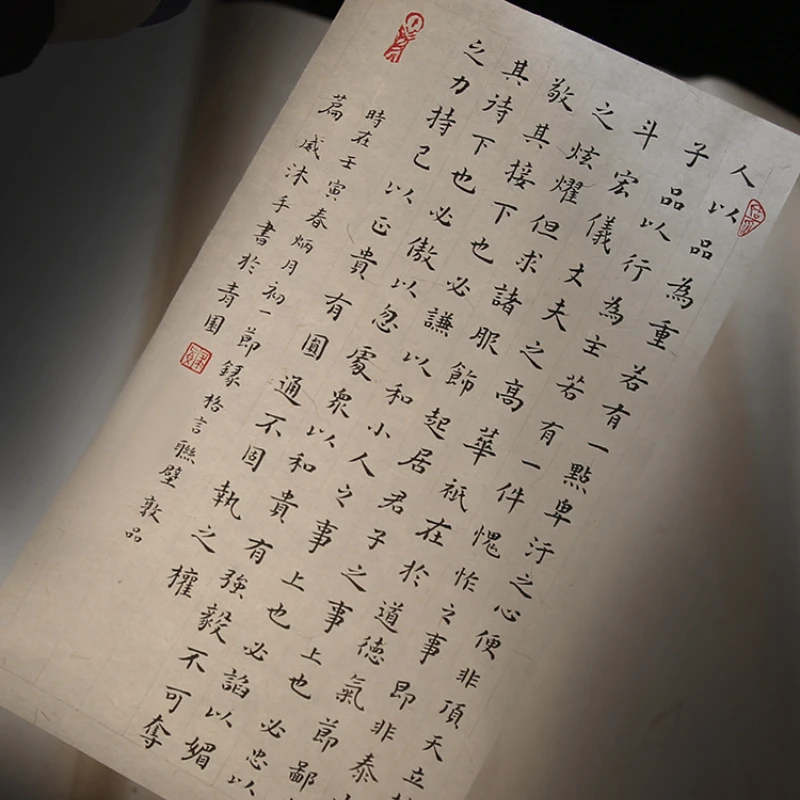 人以品為重若有一點卑汙之心便非頂天立
子品以行為主若有一件愧怍之事即非泰
斗宏儀丈夫之高華衹在於道德氣節鄙
之炫耀但求諸服飾起居君子之事上也必忠以
敬其接下也必謙以和小人之事上也必諂以媚
其待下也必傲以忽處眾以和貴有強毅不可奪
之力持己以正貴有圓通不固執之權
時在壬寅春炳月初一節錄格言聯壁敦品
篇威沐手書於青